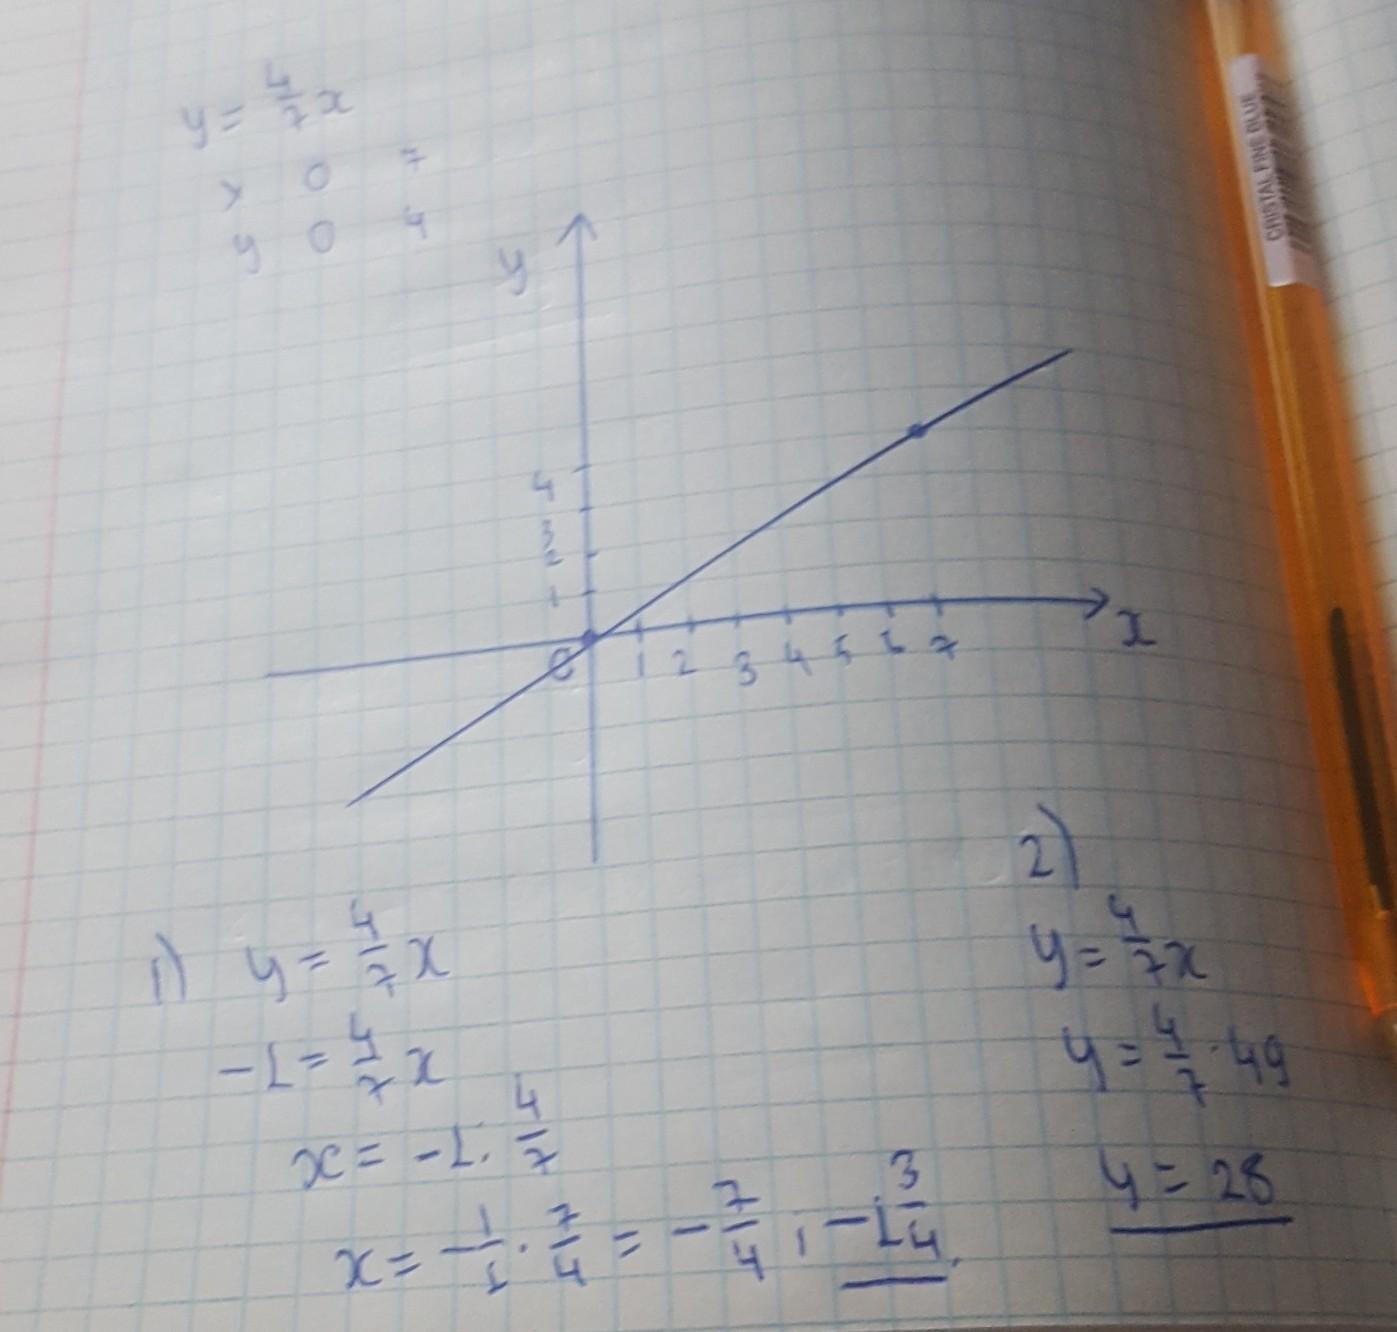 y = 4/7 x
x 0 7
y 0 4
y
4
3
2
1
0 1 2 3 4 5 6 7
x
1) y = 4/7 x
-1 = 4/7 x
x = -1 · 4/7
x = -1/1 · 7/4 = -7/4 , -1 3/4 .
2)
y = 4/7 x
y = 4/7 · 49
y = 28
CRISTAL FINE BLUE